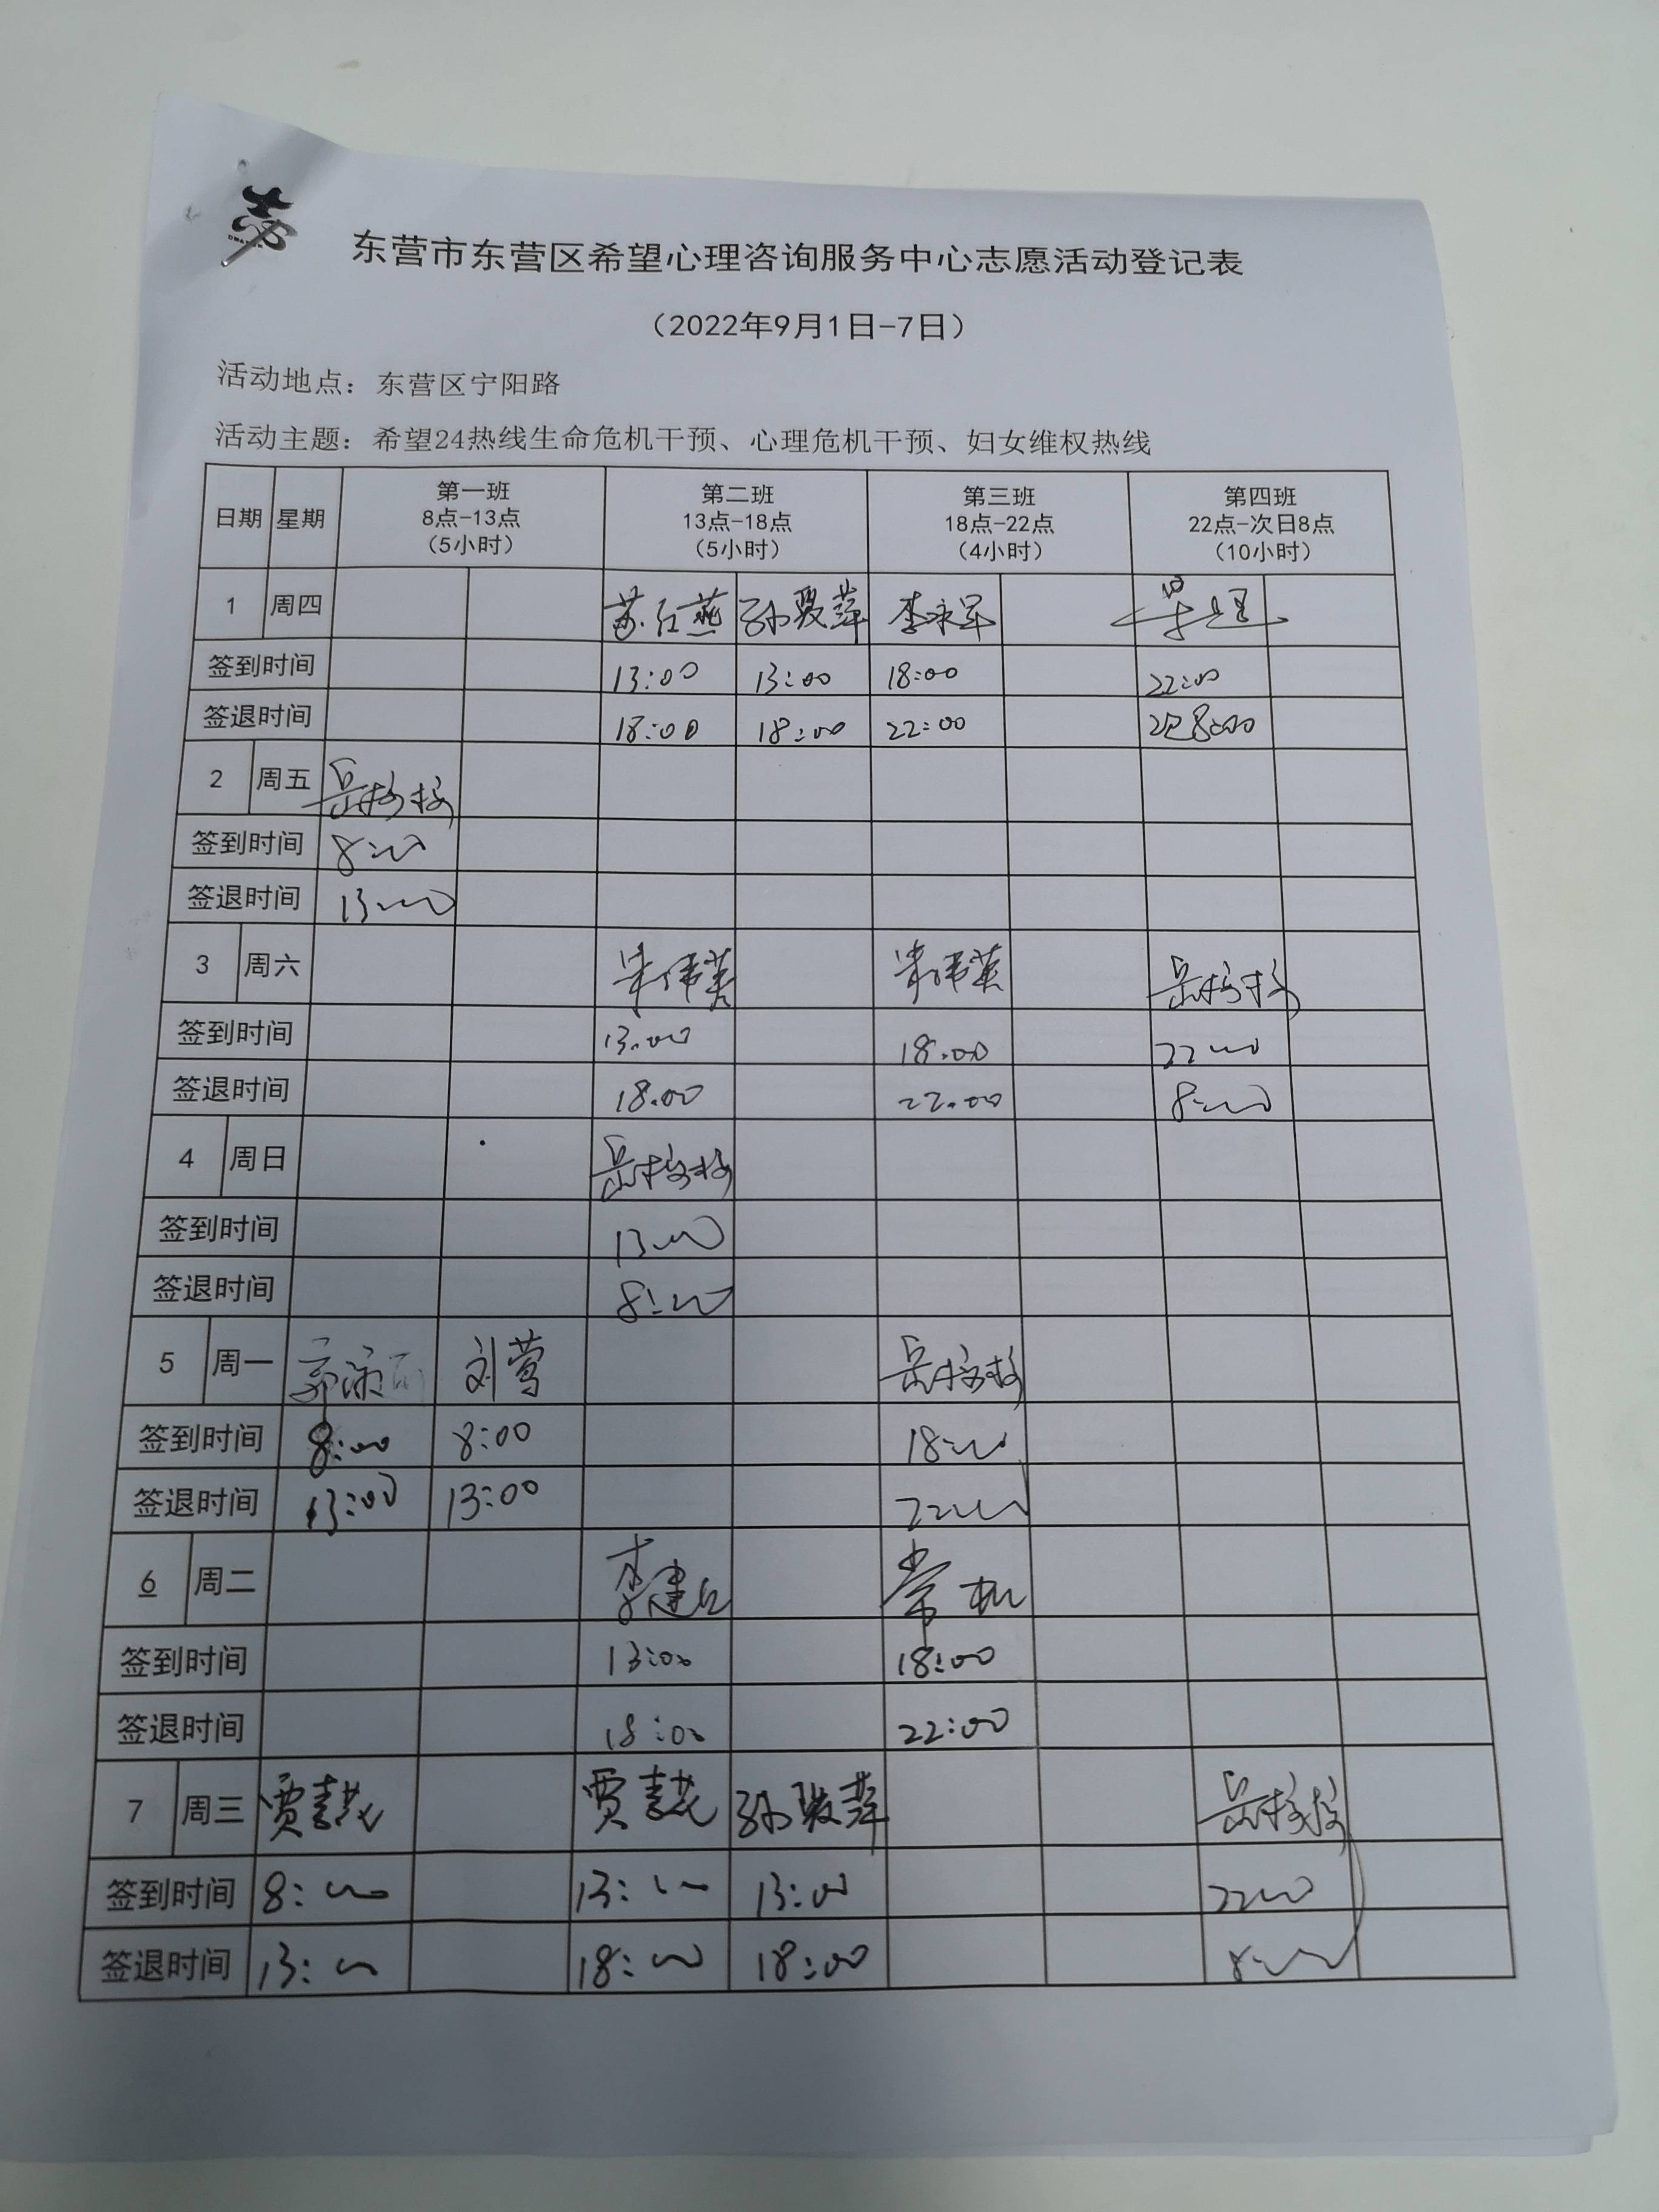 东营市东营区希望心理咨询服务中心志愿活动登记表
（2022年9月1日-7日）
活动地点：东营区宁阳路
活动主题：希望24热线生命危机干预、心理危机干预、妇女维权热线
日期 星期 第一班 8点-13点 （5小时） 第二班 13点-18点 （5小时） 第三班 18点-22点 （4小时） 第四班 22点-次日8点 （10小时）
1 周四 苏红燕 李永军
签到时间 13:00 13:00 18:00 22:00
签退时间 18:00 18:00 22:00 8:00
2 周五
签到时间 8:00
签退时间 13:00
3 周六
签到时间 13.00 18.00 22:00
签退时间 18.00 22.00 8:00
4 周日
签到时间 13:00
签退时间 8:00
5 周一 刘莺
签到时间 8:00 8:00 18:00
签退时间 13:00 13:00 22:00
6 周二 李建
签到时间 13:00 18:00
签退时间 18:00 22:00
7 周三
签到时间 8:00 13:00 13:00 22:00
签退时间 13:00 18:00 18:00 8:00